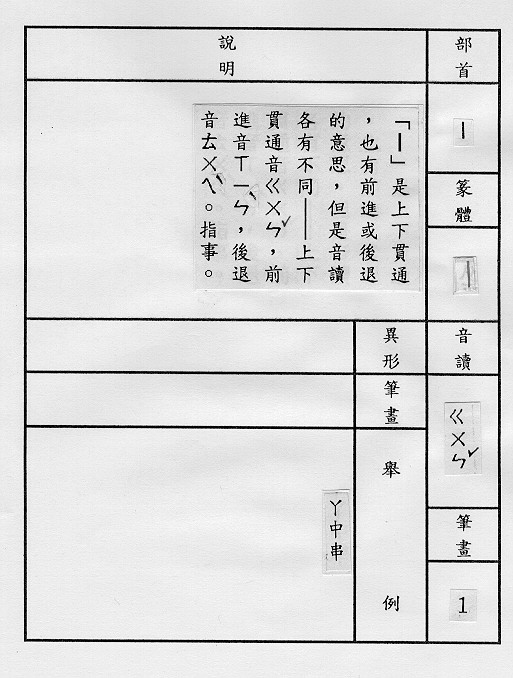 部首
丨
篆體
丨
音讀
ㄍㄨㄣˇ
筆畫
1
說明
「丨」是上下貫通
，也有前進或後退
的意思，但是音讀
各有不同──上下
貫通音ㄍㄨㄣˇ，前
進音ㄒㄧㄣˋ，後退
音ㄊㄨㄟˋ。指事。
異形
筆畫
舉例
丫中串